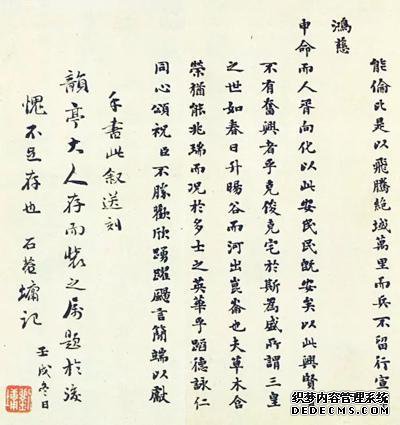 能倫比是以飛騰絶域萬里而兵不留行宣
鴻慈
申命而人胥向化以此安民民旣安矣以此興賢
不有奮興者乎克俊克宅於斯爲盛所謂三皇
之世如春日升暘谷而河出崑崙也夫草木含
榮猶能兆瑞而况於多士之英華乎蹈德詠仁
同心頌祝臣不勝歡欣踴躍颺言簡端以獻
手書此叙送刻
韻亭大人存而裝之屬題於後
愧不足存也 石菴墉記
壬戌冬日
织梦内容管理系统
DEDECMS.COM